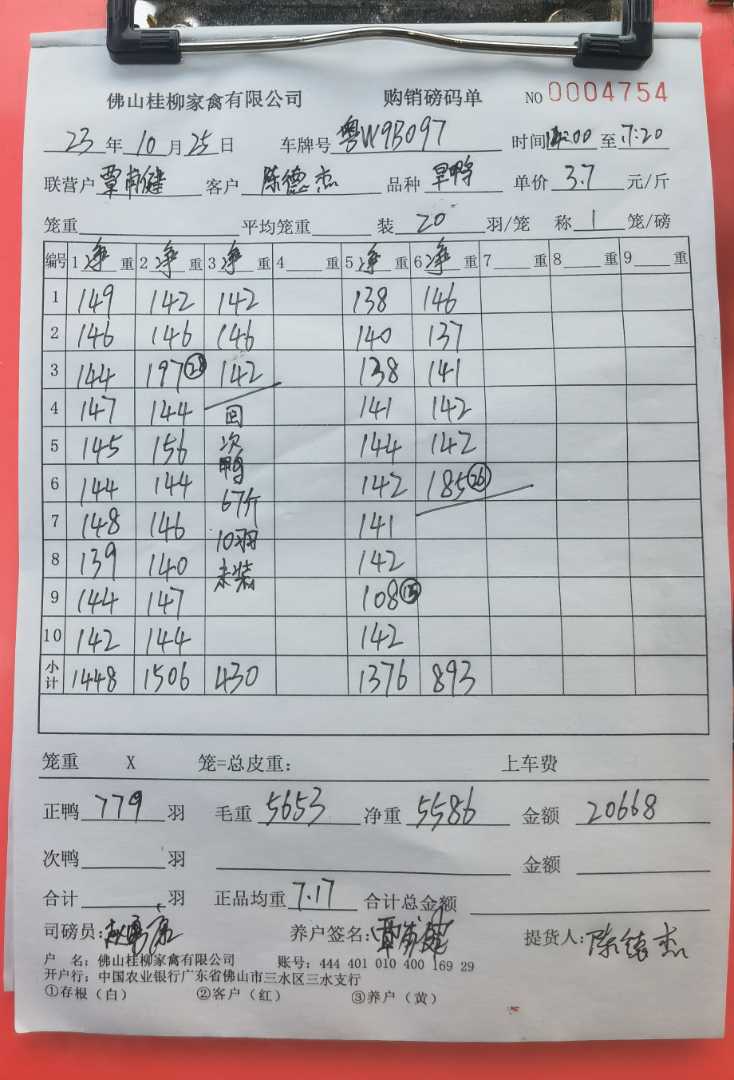 佛山桂柳家禽有限公司 购销磅码单 NO 0004754
23年10月25日 车牌号 粤W9B097 时间 至 17:20
联营户 覃甫健 客户 陈德杰 品种 旱鸭 单价 3.7 元/斤
笼重 平均笼重 装 20 羽/笼 称 1 笼/磅
编号 1 净 重 2 净 重 3 净 重 4 重 5 净 重 6 净 重 7 重 8 重 9 重
1 149 142 142 138 146
2 146 146 146 140 137
3 144 197 142 138 141
4 147 144 回 141 142
5 145 156 次鸭 144 142
6 144 144 67斤 142 185 26
7 148 146 10羽 141
8 139 140 未装 142
9 144 147 108 15
10 142 144 142
小计 1448 1506 430 1376 893
笼重 X 笼=总皮重: 上车费
正鸭 779 羽 毛重 5653 净重 5586 金额 20668
次鸭 羽 金额
合计 羽 正品均重 7.17 合计总金额
司磅员: 养户签名:覃甫健 提货人:陈德杰
户 名: 佛山桂柳家禽有限公司 账号: 444 401 010 400 169 29
开户行: 中国农业银行广东省佛山市三水区三水支行
①存根（白） ②客户（红） ③养户（黄）